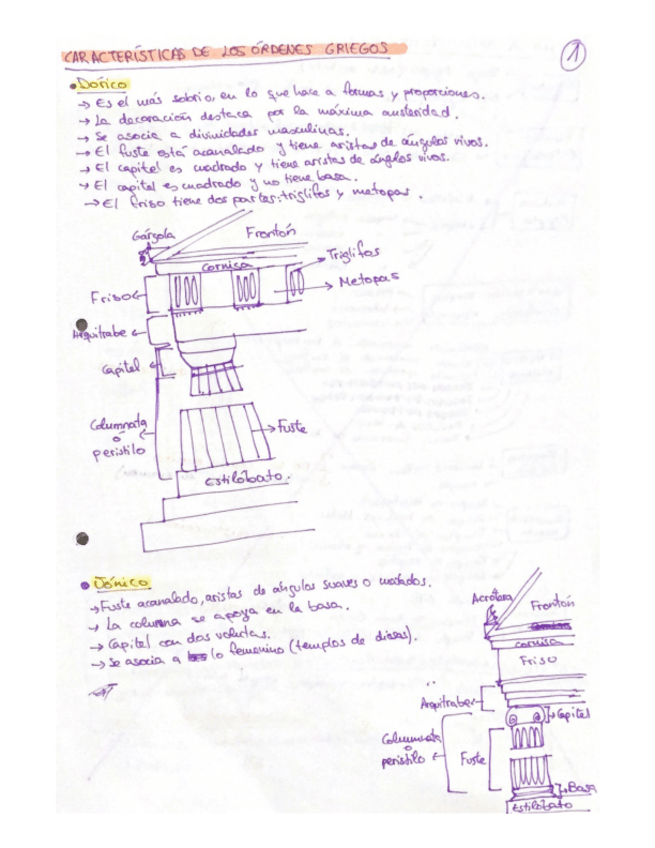 CARACTERÍSTICAS DE LOS ÓRDENES GRIEGOS
1
• Dórico
→ Es el más sobrio, en lo que hace a formas y proporciones.
→ La decoración destaca por la máxima austeridad.
→ Se asocia a divinidades masculinas.
→ El fuste está acanalado y tiene aristas de ángulos vivos.
→ El capitel es cuadrado y tiene aristas de ángulos vivos.
→ El capitel es cuadrado y no tiene basa.
→ El friso tiene dos partes: triglifos y metopas.
Gárgola
Frontón
cornisa
Triglifos
Metopas
Friso
Arquitrabe
Capitel
Columnata
o
peristilo
Fuste
Estilóbato.
• Jónico
→ Fuste acanalado, aristas de ángulos suaves o matados.
→ La columna se apoya en la basa.
→ Capitel con dos volutas.
→ Se asocia a lo femenino (templos de diosas).
Acrótera
Frontón
cornisa
Friso
Arquitrabe
Capitel
Columnata
o
peristilo
Fuste
Basa
Estilóbato